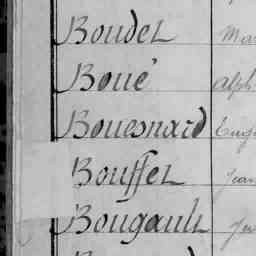 Boudet
Boué Alph
Bouesnard Eug
Bouffet Jean
Bougault